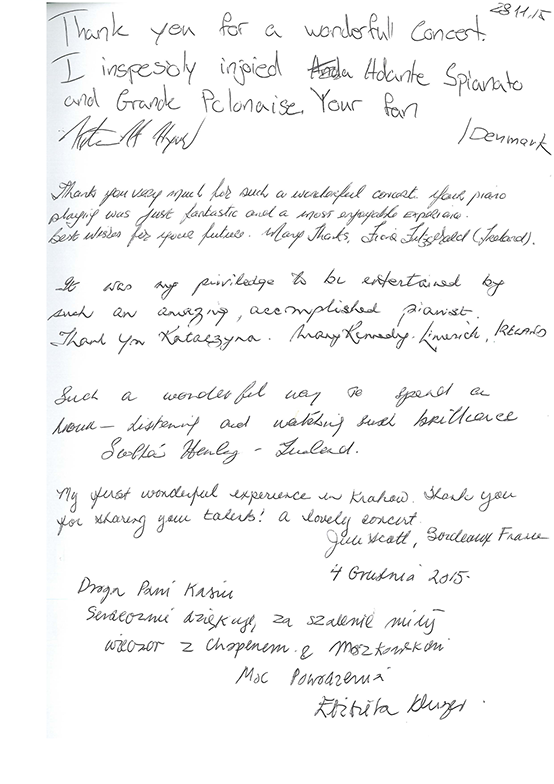 28.11.15
Thank you for a wonderfull concert.
I inspesbly injoied Adante Spianato
and Grande Polonaise. Your fan
/Denmark
Thank you very much for such a wonderful concert. Your piano
playing was just fantastic and a most enjoyable experience.
best wishes for your future. Many Thanks, Fitzgerald (Ireland).
It was my priviledge to be entertained by
such an amazing, accomplished pianist.
Thank you Katarzyna. Mary Kennedy. Limerick, IRELAND
Such a wonderful way to spend an
hour – listening and watching such brilliance
Henley – Ireland.
My first wonderful experience in Krakow. Thank you
for sharing your talents! A lovely concert.
Scott, Bordeaux France
4 Grudnia 2015.
Droga Pani Kasiu
Serdecznie dziękuję za szalenie miły
wieczór z Chopenem i Moszkowskim
Moc Powodzenia
Elżbieta